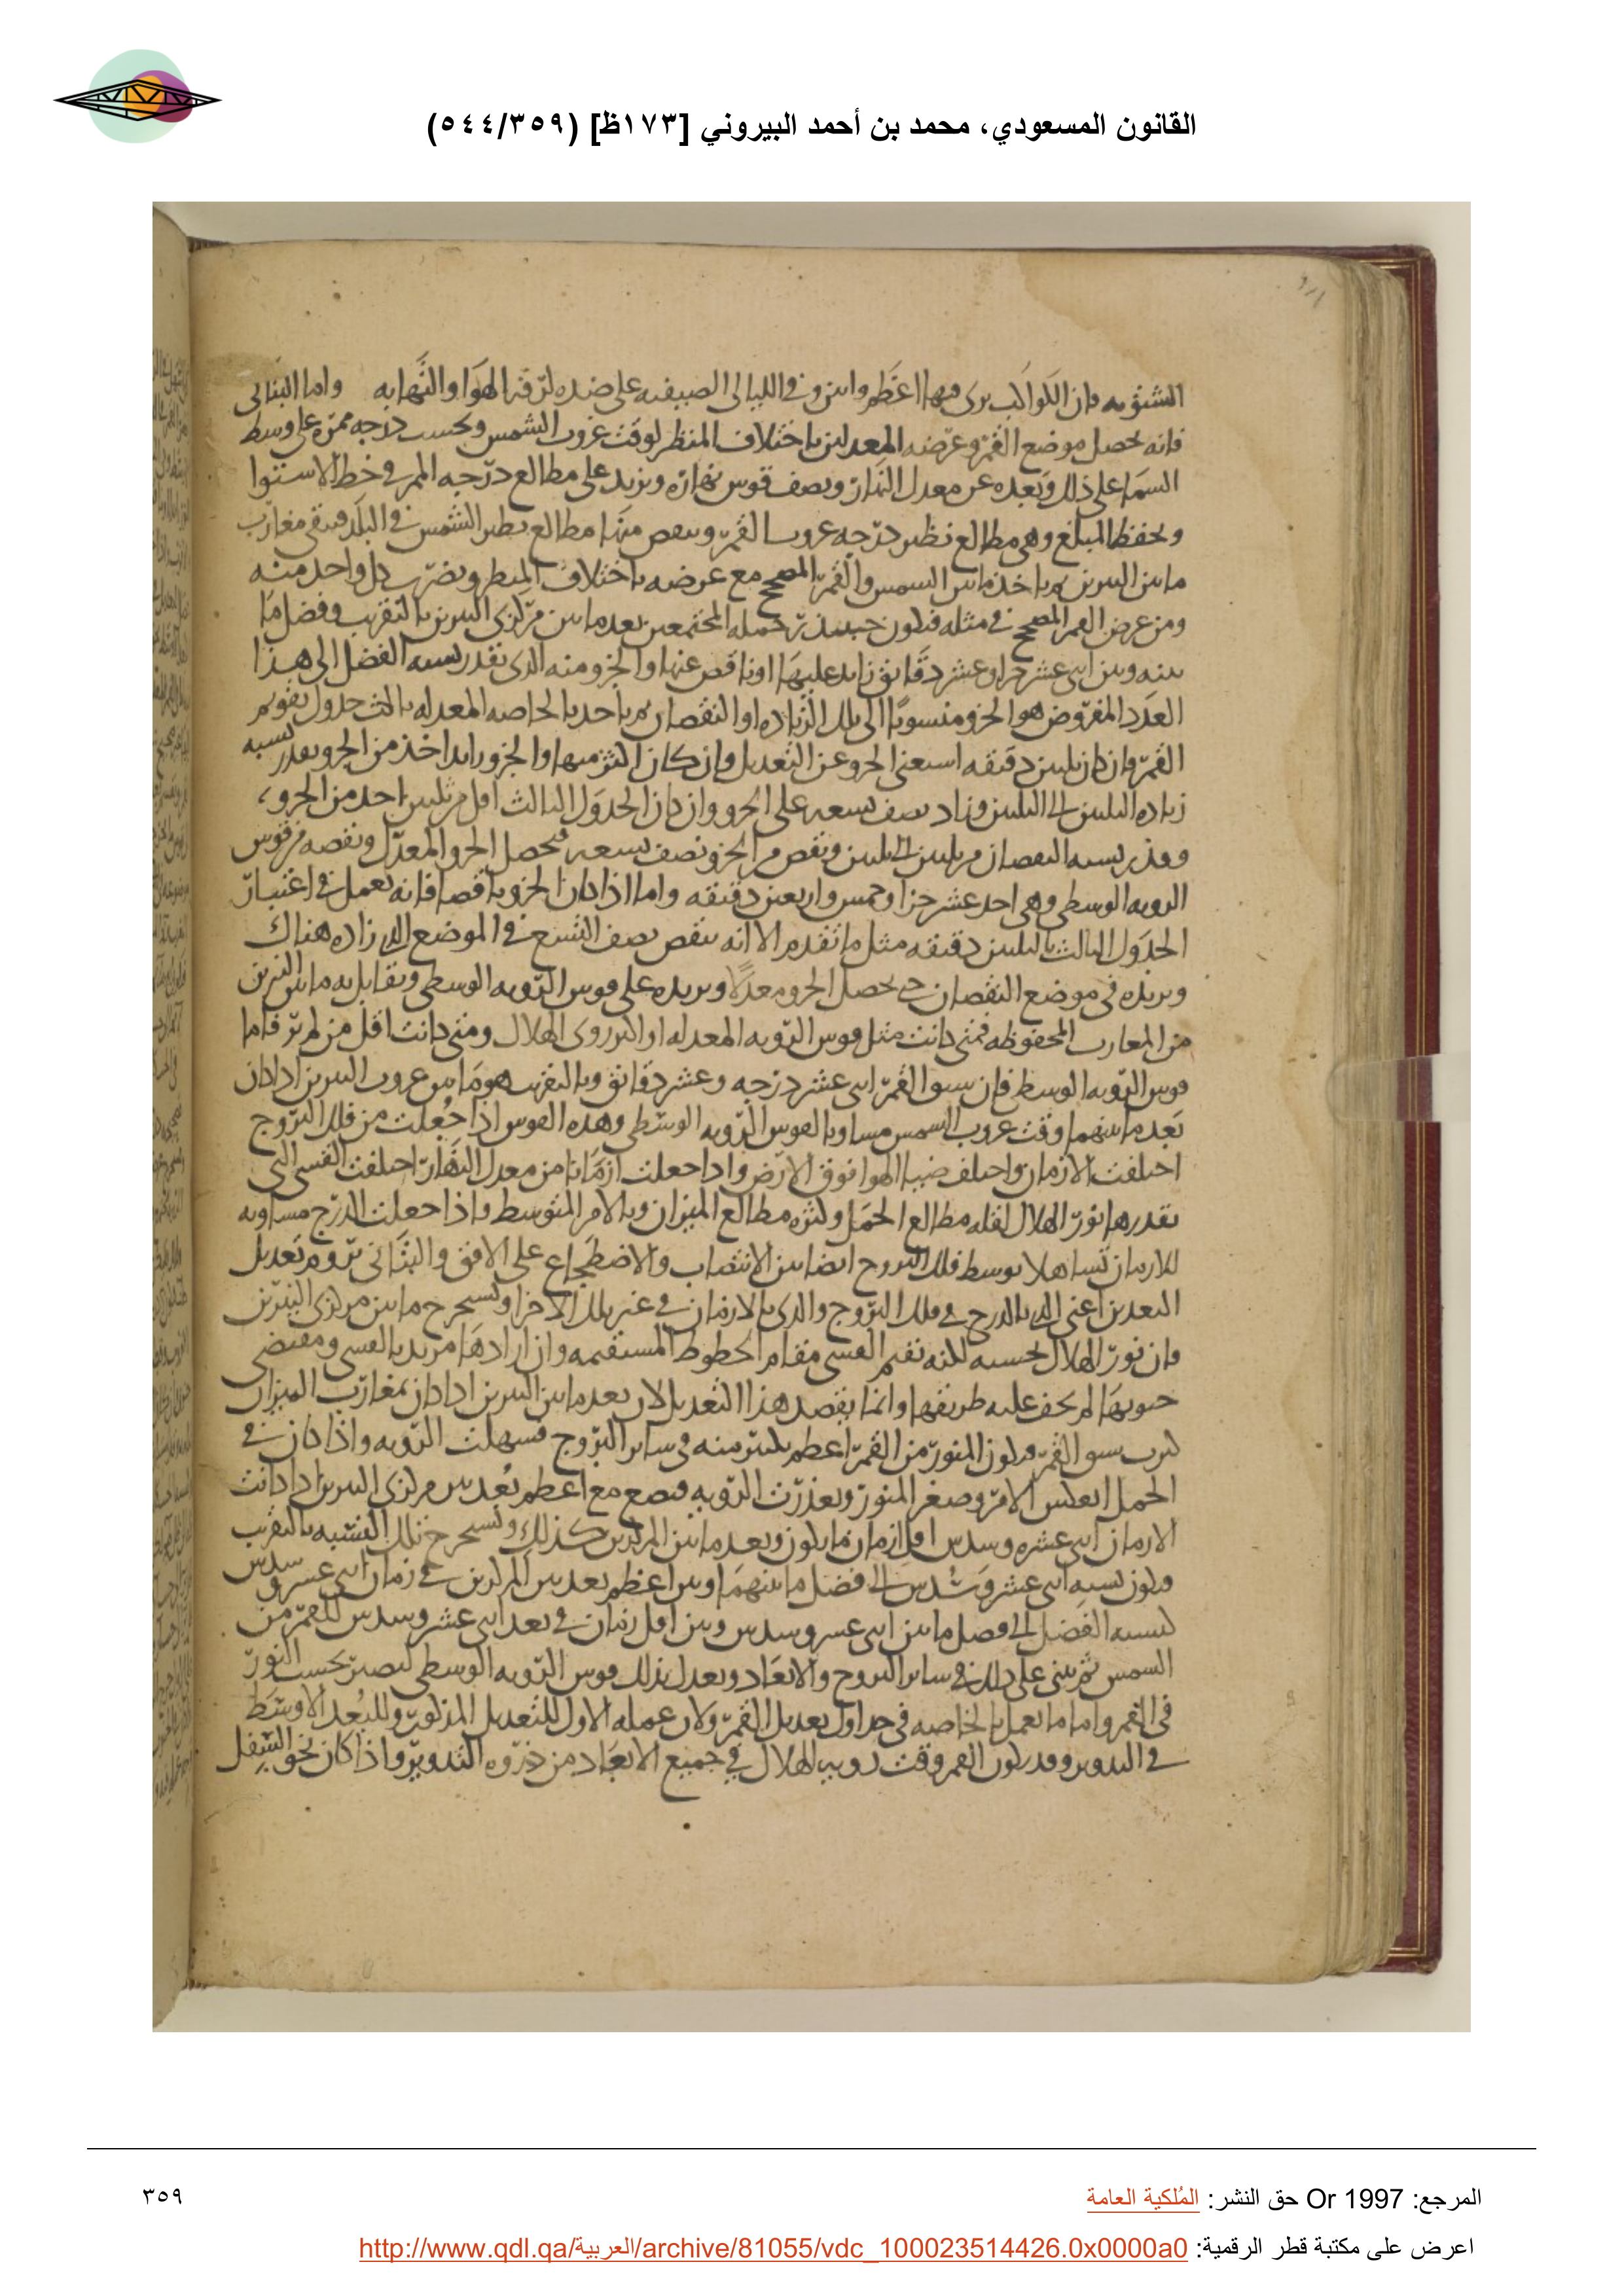 القانون المسعودي، محمد بن أحمد البيروني [١٧٣ظ] (٥٤٤/٣٥٩)
الشتويه فان الكواكب يرى فيها اعظم وابين وفي الليالي الصيفيه على ضده لرقه الهوا والتهابه واما البتاني
فانه يحصل موضع القمر وعرضه المعدلين باختلاف المنظر لوقت غروب الشمس ويحسب درجه ممره على وسط
السما على ذلك وبعده عن معدل النهار ونصف قوس نهاره ويزيد على مطالع درجه الممر في خط الاستوا
ويحفظ المبلغ وهي مطالع نظير درجه غروب القمر وينقص منها مطالع نظير الشمس في البلد فيبقى مغارب
ما بين النيرين ثم ياخذ ما بين الشمس والقمر المصحح مع عرضه باختلاف المنظر ويضرب كل واحد منه
ومن عرض القمر المصحح في مثله فيكون حينئذ جمله المجتمعين بعد ما بين مركزي النيرين بالتقريب وفضل ما
بينه وبين اثنى عشر جزا وعشر دقائق زايد عليها او ناقص عنها والجزو منه الذي بقدر نسبه الفضل الى هذا
العدد المفروض هو الجزو منسوبا الى تلك الزياده او النقصان ثم ياخذ بالخاصه المعدله ثالث جدول تقويم
القمر وان كان ثلثين دقيقه استغنى الجزو عن التعديل وان كان اكثر منها والجزو زايد اخذ من الجزو بقدر نسبه
زياده الثلثين الى الثلثين وزاد نصف تسعه على الجزو وان كان الجدول الثالث اقل من ثلثين اخذ من الجزو
وبقدر نسبه النقصان من ثلثين الى ثلثين ونقص من الجزو نصف تسعه فيحصل الجزو المعدل ونقصه من قوس
الرويه الوسطى وهي احد عشر جزا وخمس واربعين دقيقه واما اذا كان الجزو ناقصا فانه يعمل في اعتبار
الجدول الثالث بالثلثين دقيقه مثل ما تقدم الا انه ينقص نصف التسع في الموضع الذي زاده هناك
ويزيده في موضع النقصان حتى يحصل الجزو معدلا ويزيده على قوس الرويه الوسطى ويقابل به ما بين النيرين
من المغارب المحفوظه فمتى كانت مثل قوس الرويه المعدله او اكثر روى الهلال ومتى كانت اقل من لم ير فاما
قوس الرويه الوسطى فان سبق القمر اثنى عشر درجه وعشر دقائق وبالتقريب هو ما بين غروب النيرين اذا كان
بعد ما بينهما وقت غروب الشمس مساويا لقوس الرويه الوسطى وهذه القوس اذا جعلت من فلك البروج
اختلفت الازمان واختلف ضيا الهوا فوق الارض واذا جعلت ازمانا من معدل النهار اختلفت القسي التي
بقدرها نور الهلال لقله مطالع الحمل وكثره مطالع الميزان وبالامر المتوسط واذا جعلت الدرج مساويه
للازمان تساهلا توسط فلك البروج ايضا بين الانتصاب والاضطجاع على الافق والبتاني يروم تعديل
البعدين اعني الذي بالدرج في فلك البروج والذي بالازمان في غير تلك الاجزا ويستخرج ما بين مركزي النيرين
فان نور الهلال بحسبه لكنه تقيم القسي مقام الخطوط المستقيمه وان ارادها مريد بالقسي ومقتضى
جيوبها لم يخف عليه طريقها وانما يقصد هذا التعديل لان بعد ما بين النيرين اذا كان بمغارب الميزان
كثر سبق القمر فيكون المنور من القمر اعظم بكثير منه في ساير البروج فسهلت الرويه واذا كان في
الحمل انعكس الامر وصغر المنور وتعذرت الرويه فيصع مع اعظم بعد بين مركزي النيرين اذا كانت
الازمان اثنى عشره وسدس اقل ازمان ما يكون وبعد ما بين المركزين كذلك ويستخرج تلك النسبه بالتقريب
فيكون نسبه اثنى عشر وسدس الى فضل ما بينهما وبين اعظم بعد بين المركزين في زمان اثنى عشر وسدس
كنسبه الفضل الى فضل ما بين اثنى عشر وسدس وبين اقل زمان في بعد اثنى عشر وسدس للقمر من
الشمس ثم بنى على ذلك في ساير البروج والابعاد ويعدل بذلك قوس الرويه الوسطى ليصير بحسب النور
في القمر واما ما يعمل بالخاصه في جداول تعديل القمر ولان عمله الاول للتعديل المذكور وللبعد الاوسط
في التدوير وقد يكون القمر وقت رويه الهلال في جميع الابعاد من ذروه التدوير واذا كان نحو السفل
المرجع: Or 1997 حق النشر: المُلكية العامة
٣٥٩
اعرض على مكتبة قطر الرقمية: http://www.qdl.qa/العربية/archive/81055/vdc_100023514426.0x0000a0